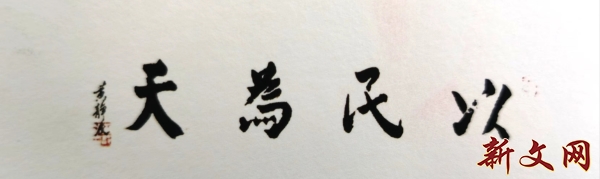 以民為天
新文网